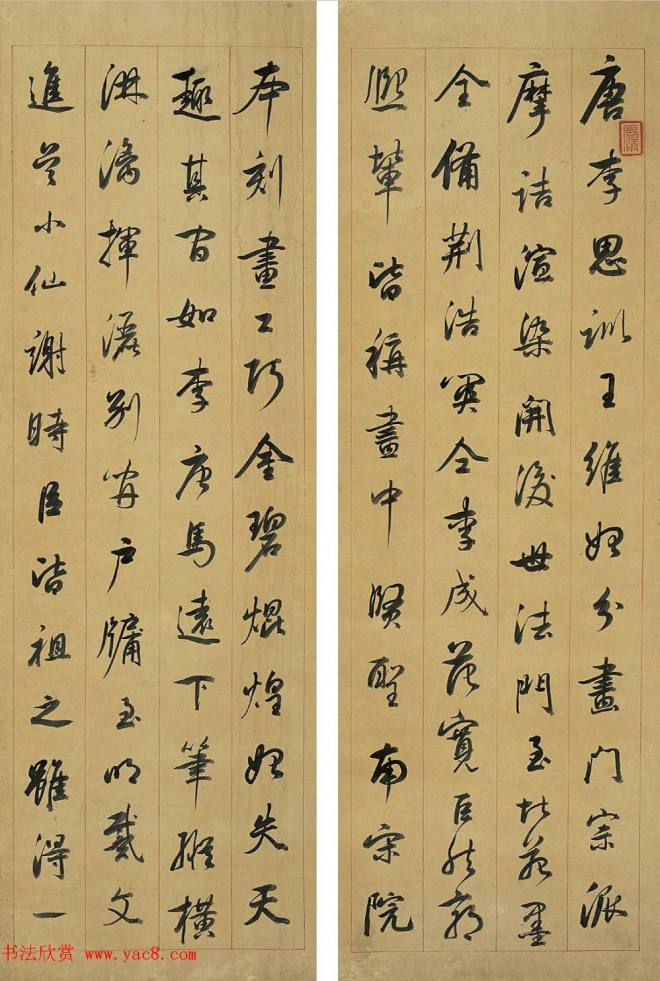 唐李思訓王維始分畫門宗派
摩詰渲染開後世法門至北苑墨
全備荆浩関仝李成范寬巨然郭
熙輩皆稱畫中賢聖南宋院
本刻畫工巧金碧焜煌始失天
趣其間如李唐馬遠下筆縱橫
淋漓揮灑別開户牖至明戴文
進吳小仙謝時臣皆祖之雖得一
书法欣赏 www.yac8.com